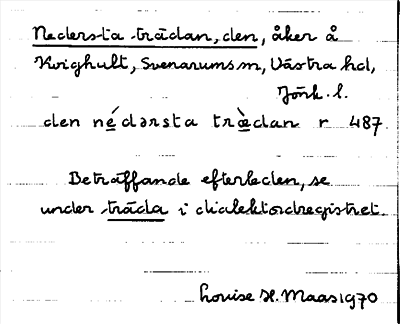 Nedersta trädan, den, åker å
Kvighult, Svenarums sn, Västra hd,
Jönk. l.
den nédərsta træ̀dan r 487
Beträffande efterleden, se
under träda i dialektordregistret.
Louise H. Maas 1970